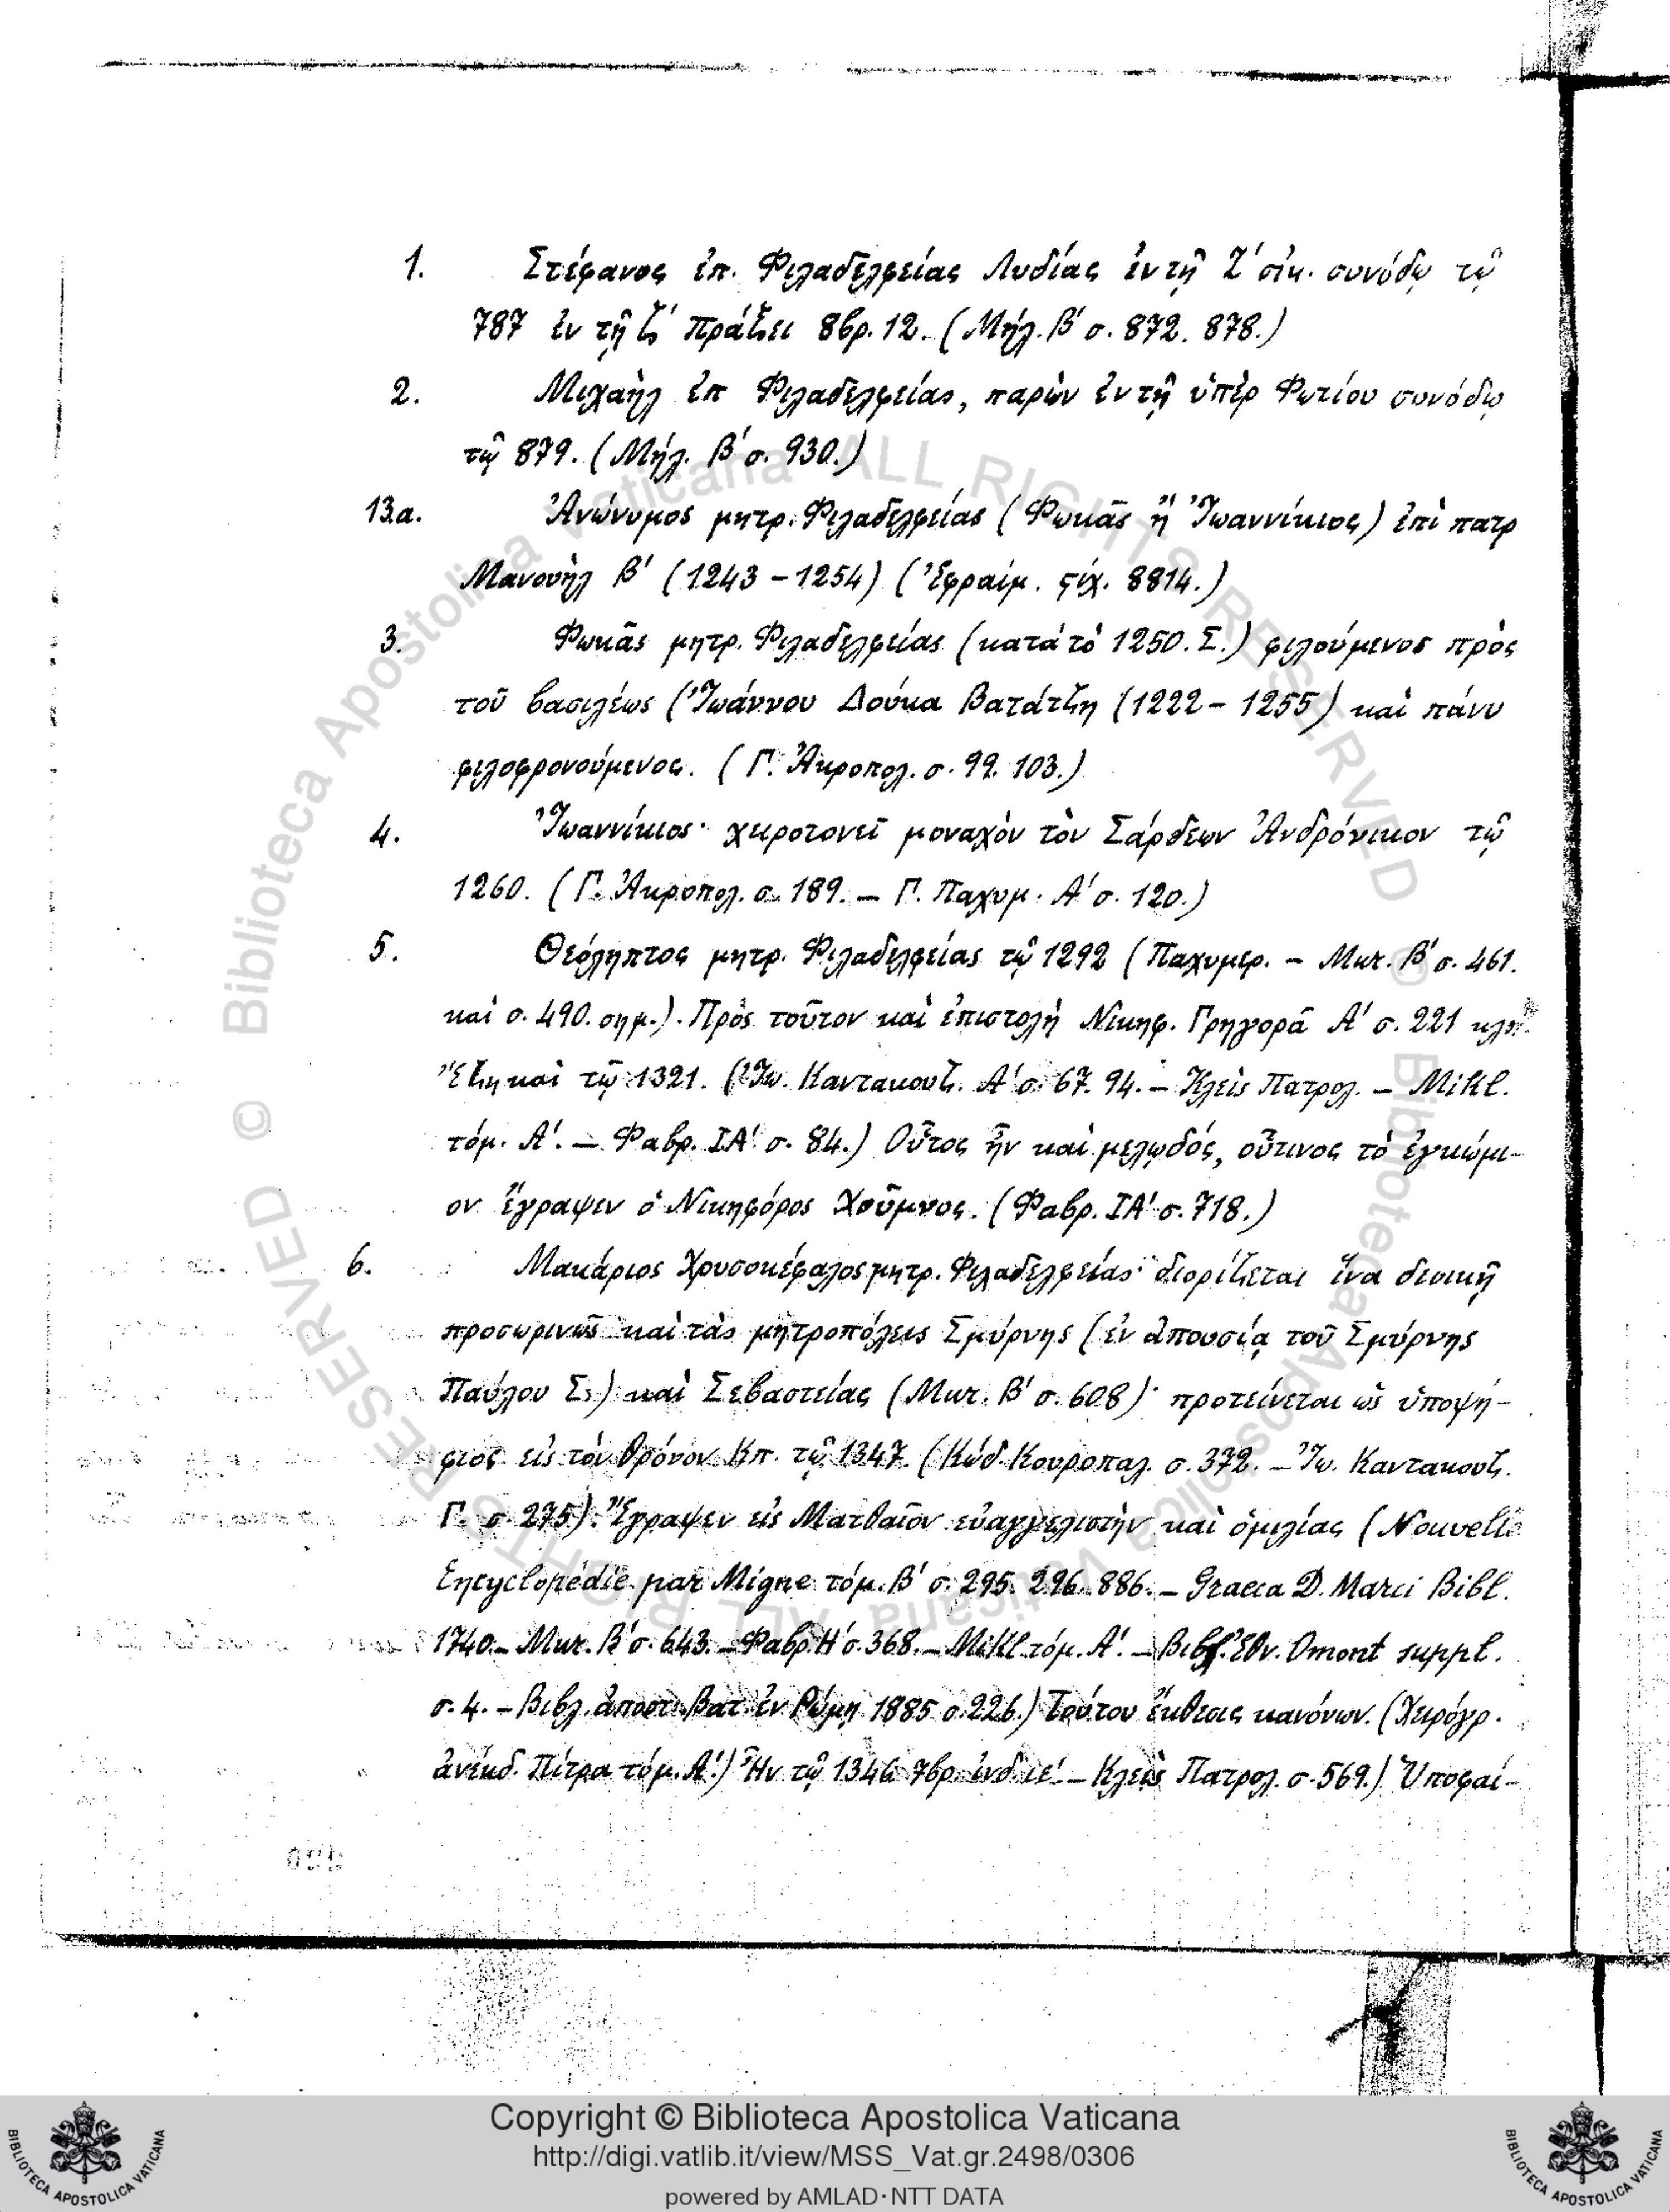 1. Στέφανος ἐπ. Φιλαδελφείας Λυδίας ἐν τῇ Ζ΄ οἰκ. συνόδῳ τῷ
787 ἐν τῇ ζ΄ Πράξει 8βρ. 12. (Μήλ. Β΄ σ. 872. 878.)
2. Μιχαὴλ ἐπ Φιλαδελφείας, παρὼν ἐν τῇ ὑπὲρ Φωτίου συνόδῳ
τῷ 879. (Μήλ. Β΄ σ. 930.)
13.α. Ἀνώνυμος μητρ. Φιλαδελφείας (Φωκᾶς ἢ Ἰωαννίκιος) ἐπὶ πατρ
Μανουὴλ Β΄ (1243 – 1254) (Ἐφραίμ. ςίχ. 8814.)
3. Φωκᾶς μητρ. Φιλαδελφείας (κατὰ τὸ 1250. Σ.) φιλούμενος πρὸς
τοῦ βασιλέως (Ἰωάννου Δούκα Βατάτζη (1222 – 1255) καὶ πάνυ
φιλοφρονούμενος. (Γ. Ἀκροπολ. σ. 99. 103.)
4. Ἰωαννίκιος· χειροτονεῖ μοναχὸν τὸν Σάρδεων Ἀνδρόνικον τῷ
1260. (Γ. Ἀκροπολ. σ. 189. – Γ. Παχυμ. Α΄ σ. 120.)
5. Θεόληπτος μητρ. Φιλαδελφείας τῷ 1292 (Παχυμερ. – Μικ. Β΄ σ. 461.
καὶ σ. 490. σημ.). Πρὸς τοῦτον καὶ ἐπιστολὴ Νικηφ. Γρηγορᾶ Α΄ σ. 221
Ἔζη καὶ τῷ 1321. (Ἰω. Καντακουζ. Α΄ σ. 67. 94. – Κλεὶς Πατρολ. – Mikl.
τόμ. Α΄. – Φαβρ. ΙΑ΄ σ. 84.) Οὗτος ἦν καὶ μελῳδός, οὗτινος τὸ ἐγκώμι-
ον ἔγραψεν ὁ Νικηφόρος Χοῦμνος. (Φαβρ. ΙΑ΄ σ. 718.)
6. Μακάριος Χρυσοκέφαλος μητρ. Φιλαδελφείας· διορίζεται ἵνα διοικῇ
προσωρινῶς καὶ τὰς μητροπόλεις Σμύρνης (ἐν ἀπουσίᾳ τοῦ Σμύρνης
Παύλου Σ.) καὶ Σεβαστείας (Μικ. Β΄ σ. 608)· προτείνεται ὡς ὑποψή-
φιος εἰς τὸν θρόνον Κπ. τῷ 1347. (Κώδ. Κουροπαλ. σ. 372. – Ἰω. Καντακουζ.
Γ. σ. 275). Ἔγραψεν εἰς Ματθαῖον εὐαγγελιστὴν καὶ ὁμιλίας (Nouvelle
Encyclopédie par Migne τόμ. Β΄ σ. 295. 296. 886. – Graeca D. Marci Bibl.
1740. – Μικ. Β΄ σ. 643. – Φαβρ. Η΄ σ. 368. – Mikl. τόμ. Α΄. – Βιβλ. Ἐθν. Omont suppl.
σ. 4. – Βιβλ. ἀποστ. Βατ. ἐν Ρώμῃ 1885 σ. 226.) Τούτου ἔκθεσις κανόνων. (Χειρόγρ.
ἀνέκδ. Πίτρα τόμ. Α΄.) Ἦν τῷ 1346 7βρ. ἰνδ. ιε΄. – Κλεὶς Πατρολ. σ. 569.) Ὑποφαί-
© Biblioteca Apostolica Vaticana ALL RIGHTS RESERVED
Copyright © Biblioteca Apostolica Vaticana
http://digi.vatlib.it/view/MSS_Vat.gr.2498/0306
powered by AMLAD·NTT DATA
BIBLIOTECA APOSTOLICA VATICANA
BIBLIOTECA APOSTOLICA VATICANA